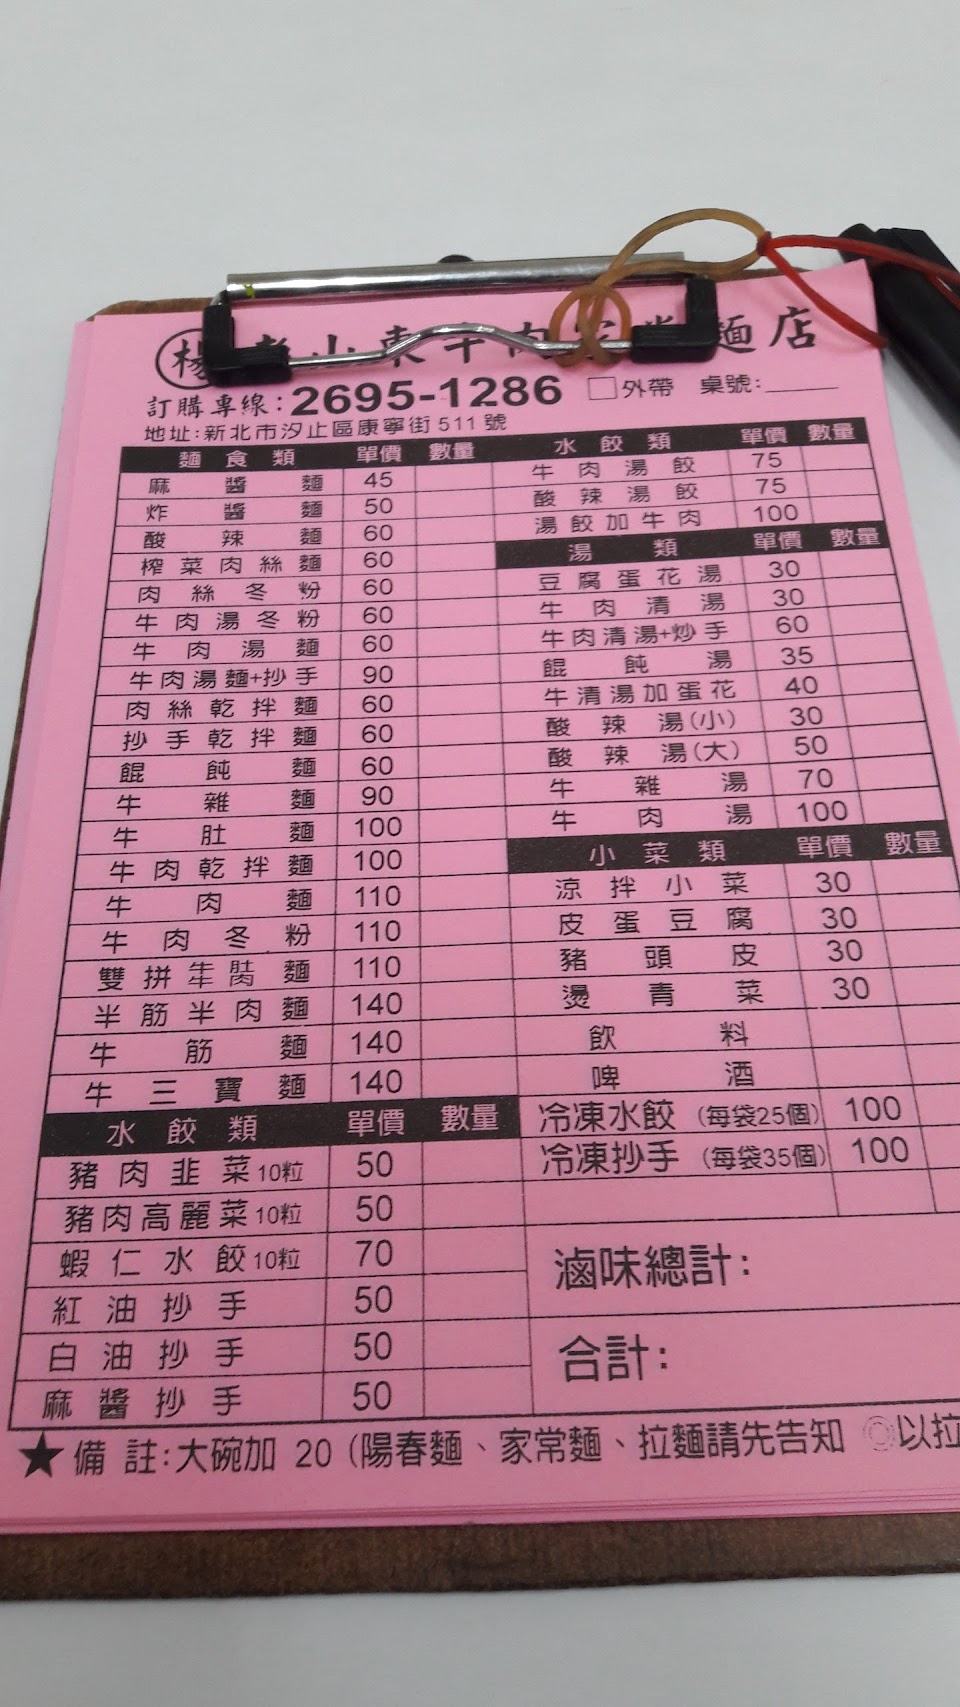 楊老山東牛肉家常麵店
訂購專線:2695-1286 □外帶 桌號:
地址:新北市汐止區康寧街511號
麵食類 單價 數量
麻醬麵 45
炸醬麵 50
酸辣麵 60
榨菜肉絲麵 60
肉絲冬粉 60
牛肉湯冬粉 60
牛肉湯麵 60
牛肉湯麵+抄手 90
肉絲乾拌麵 60
抄手乾拌麵 60
餛飩麵 60
牛雜麵 90
牛肚麵 100
牛肉乾拌麵 100
牛肉麵 110
牛肉冬粉 110
雙拼牛肚麵 110
半筋半肉麵 140
牛筋麵 140
牛三寶麵 140
水餃類 單價 數量
豬肉韭菜10粒 50
豬肉高麗菜10粒 50
蝦仁水餃10粒 70
紅油抄手 50
白油抄手 50
麻醬抄手 50
水餃類 單價 數量
牛肉湯餃 75
酸辣湯餃 75
湯餃加牛肉 100
湯類 單價 數量
豆腐蛋花湯 30
牛肉清湯 30
牛肉清湯+炒手 60
餛飩湯 35
牛清湯加蛋花 40
酸辣湯(小) 30
酸辣湯(大) 50
牛雜湯 70
牛肉湯 100
小菜類 單價 數量
涼拌小菜 30
皮蛋豆腐 30
豬頭皮 30
燙青菜 30
飲料
啤酒
冷凍水餃(每袋25個) 100
冷凍抄手(每袋35個) 100
滷味總計:
合計:
★備註:大碗加20(陽春麵、家常麵、拉麵請先告知 ◎以拉